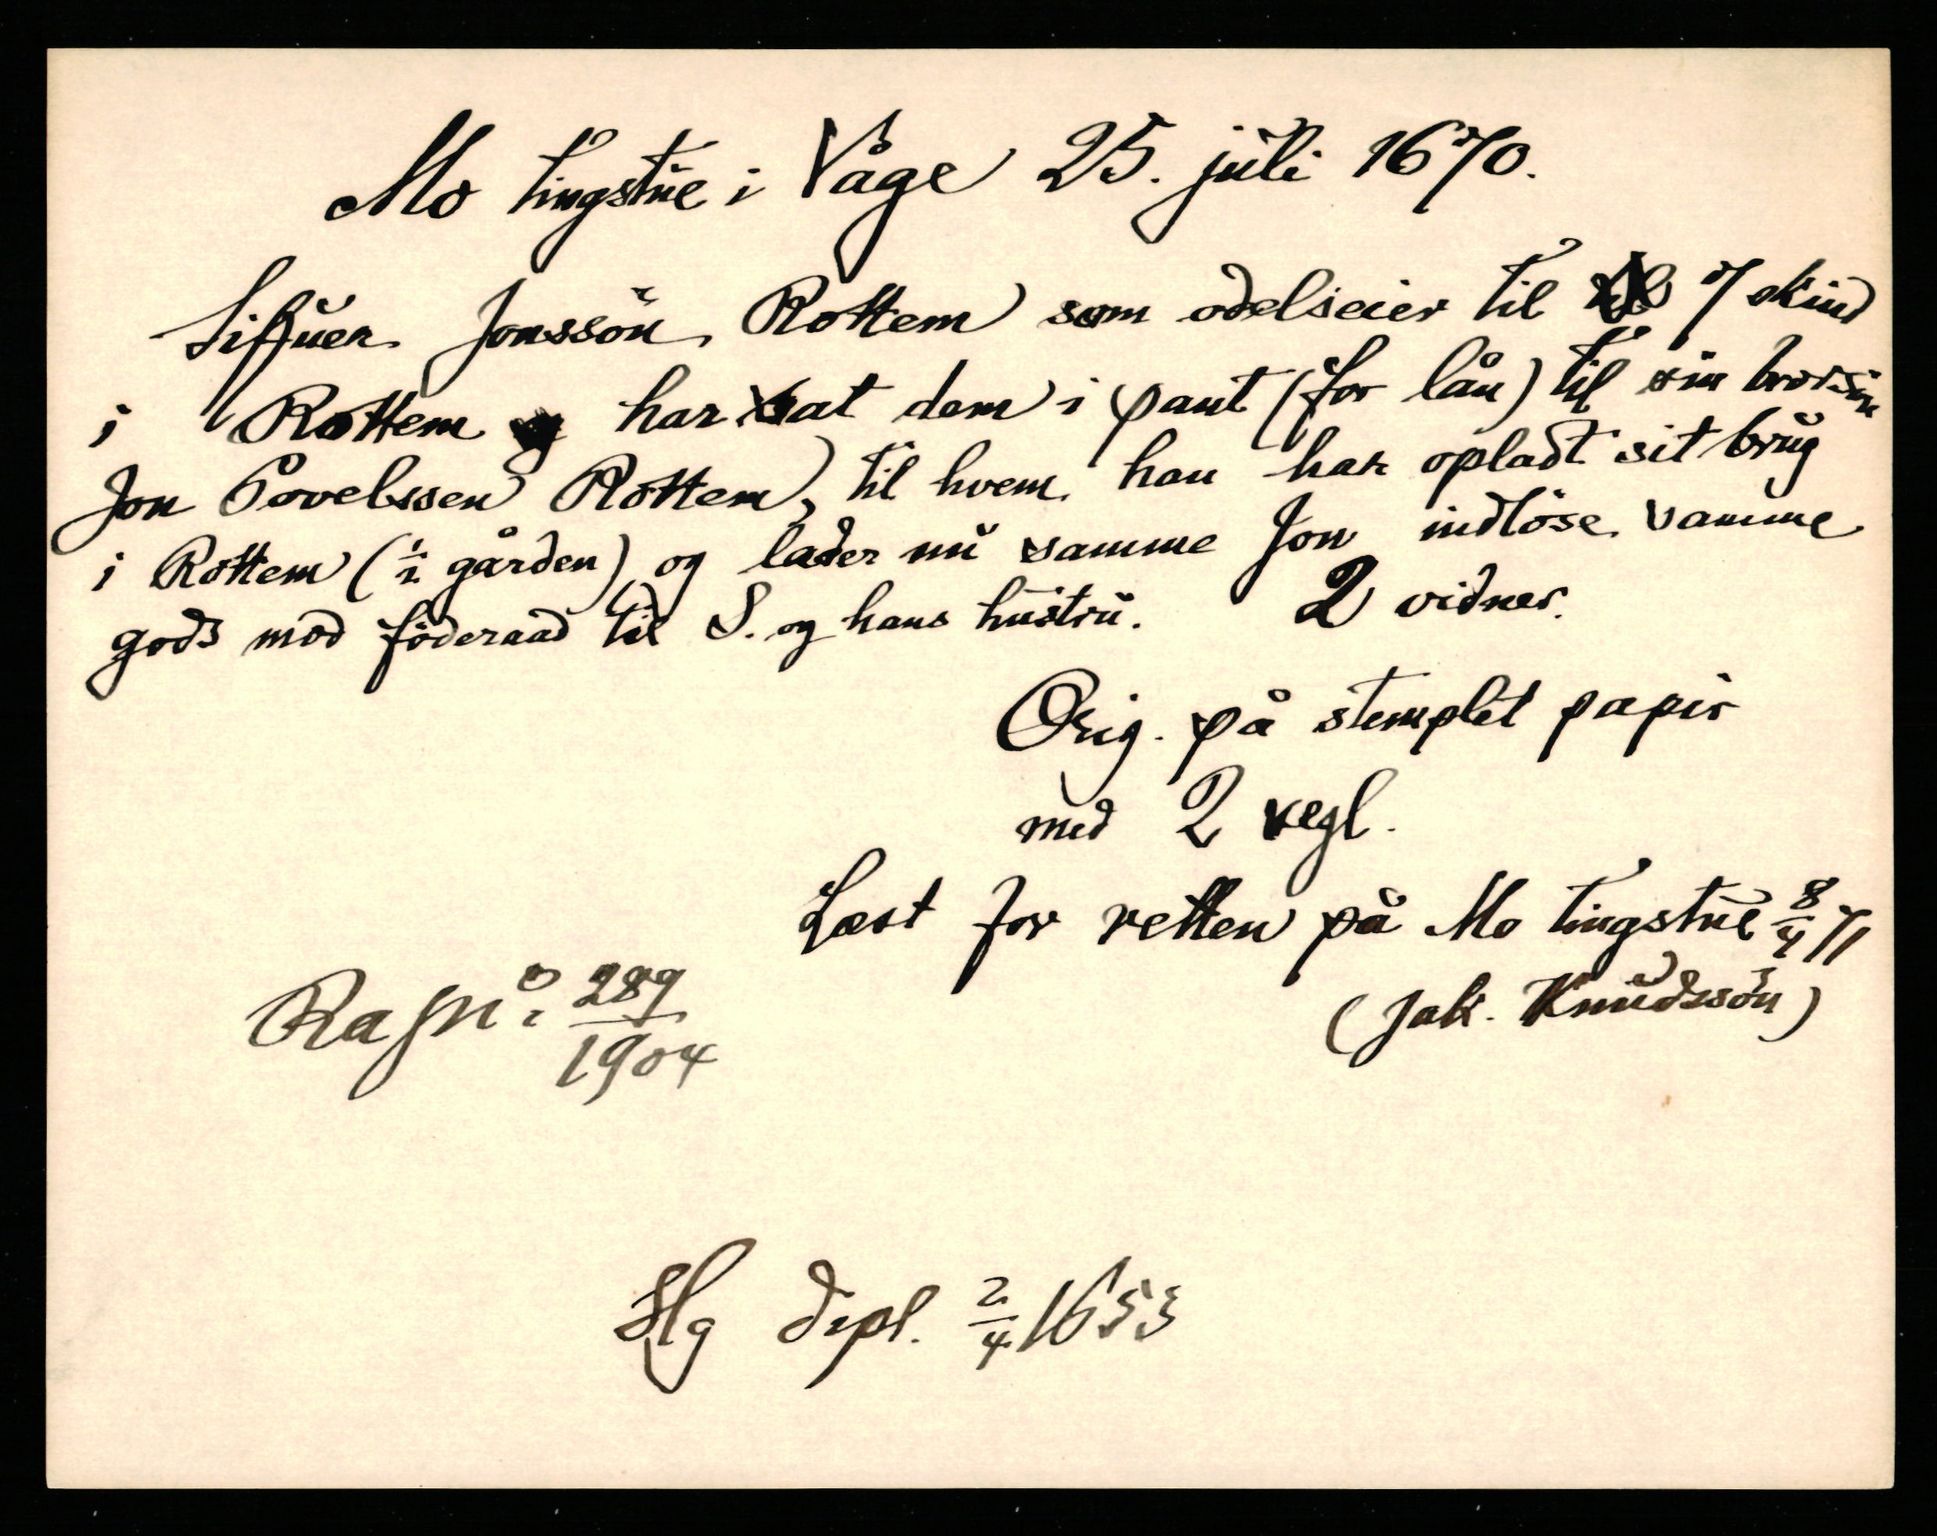 Mo tingstue i Våge 25. juli 1670.
Siffuer Jonssön Rottem som odelseier til 7 skind
i Rottem har sat dem i pant (for lån) til sin brorsön
Jon Povelssen Rottem, til hvem han har opladt sit brug
i Rottem (½ gården) og lader nu samme Jon indlöse samme
gods mod föderaad til S. og hans hustru. 2 vidner.
Orig. på stemplet papir
med 2 segl.
Læst for retten på Mo tingstue 8/4 71
(Jak. Knudssön)
289/1904
Hg dipl. 2/4 1653